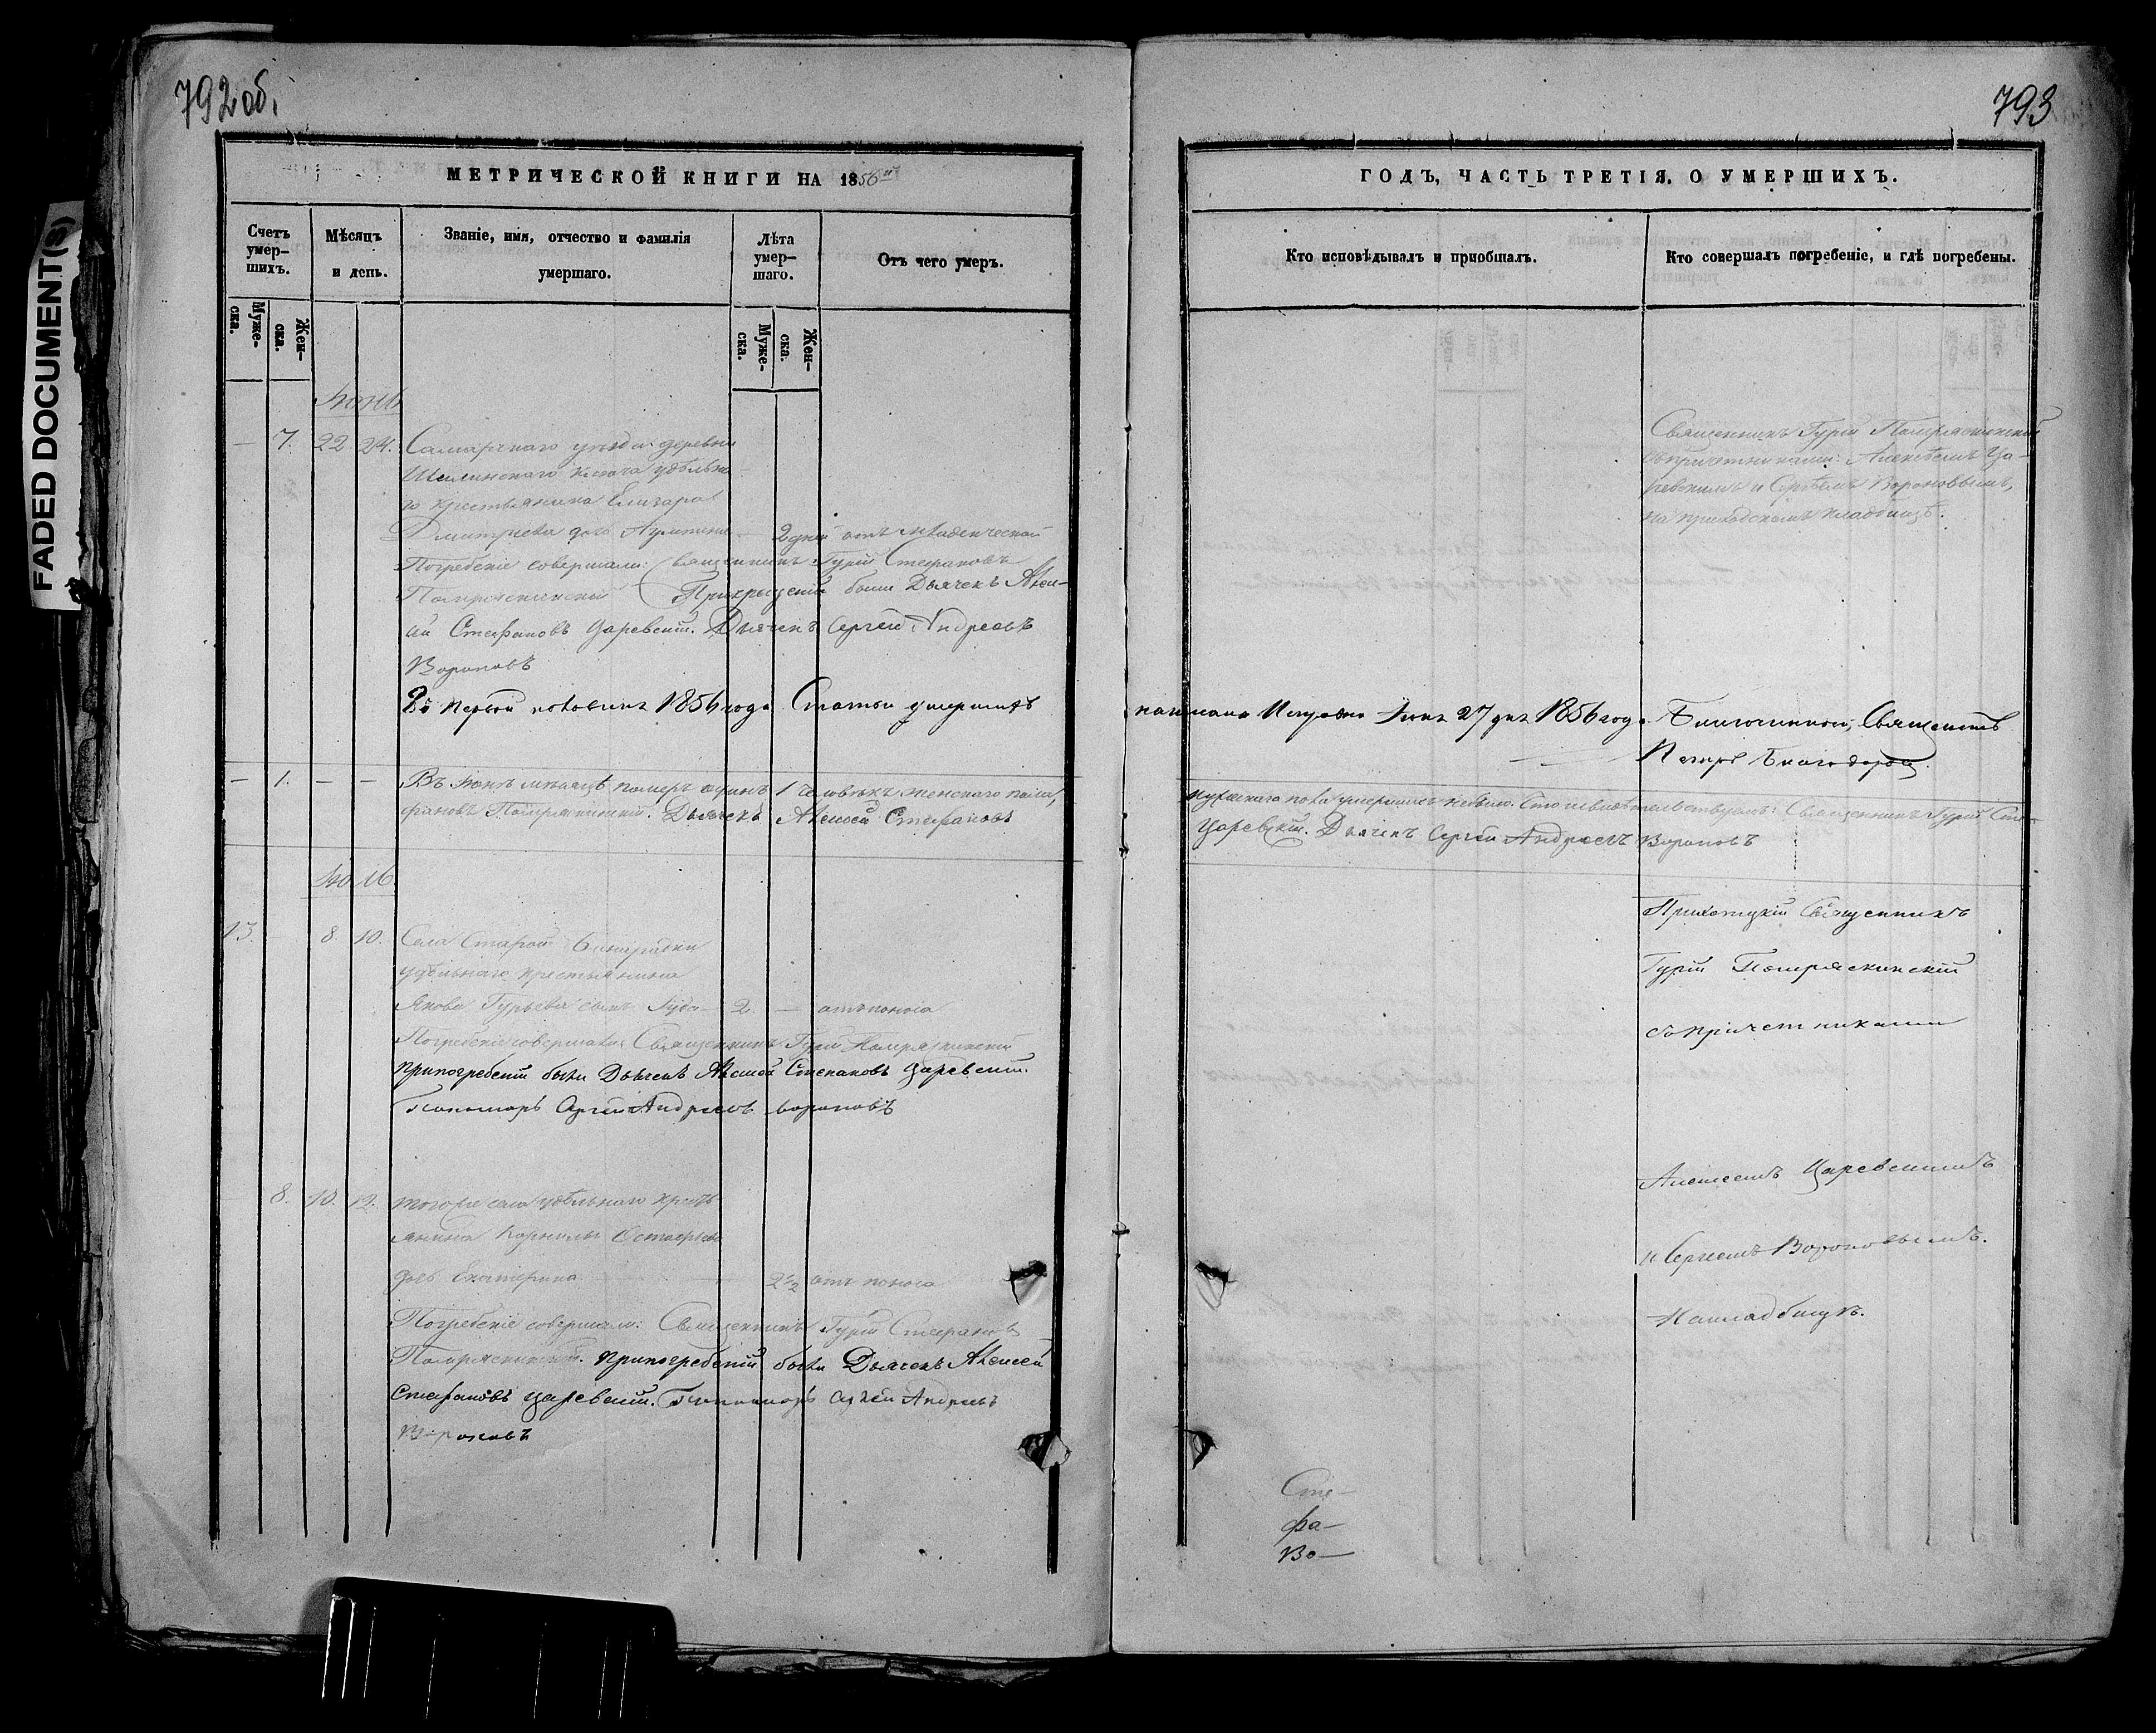 792 об.
793
FADED DOCUMENT(S)
МЕТРИЧЕСКОЙ КНИГИ НА 1856й
Счетъ умер-
шихъ.
Муже-
ска.
Жен-
ска.
Мѣсяцъ
и день.
Званіе, имя, отчество и фамилія
умершаго.
Лѣта
умер-
шаго.
Муже-
ска.
Жен-
ска.
Отъ чего умеръ.
Іюнь
— 7. 22 24. Самарскаго уѣзда деревни
Шилинскаго Ключа удѣльна-
го крестьянина Елизара
Дмитріева дочь — 2 дней отъ младенческой
Погребеніе совершали: Священникъ Гурій Стефановъ
Помряскинскій были Дьячекъ Алек-
ѣй Стефановъ Царевскій. Дьячекъ Сергей Андреевъ
Вороновъ
Въ первой половинѣ 1856 года Статьи умершихъ
— 1. — — Въ Іюнѣ мѣсяцѣ померъ одинъ 1 человѣкъ женскаго пола,
фановъ Помряскинскій. Дьячекъ Алексей Стефановъ
Іюль
13. 8. 10. Села Старой Бинарадки
удѣльнаго крестьянина
Якова Гурьева сынъ — 2. — отъ поноса
Погребеніе совершали Священникъ Гурій Помряскинскій
при погребеніи были Дьячекъ Алексей Степановъ Царевскій.
Пономарь Сергей Андреевъ Вороновъ
8. 10. 12. Того же села удѣльнаго кресть
янина Корнилы
дочь Екатерина 2½ отъ поноса
Погребеніе совершали: Священникъ Гурій Стефановъ
Помряскинскій. при погребеніи были Дьячекъ Алексей
Стефановъ Царевскій. Пономарь Сергей Андреевъ
Вороновъ
ГОДЪ, ЧАСТЬ ТРЕТІЯ, О УМЕРШИХЪ.
Кто исповѣдывалъ и пріобщалъ.
Кто совершалъ погребеніе, и гдѣ погребены.
Священникъ Гурій Помряскинскій
съ причетниками: Алексѣемъ Ца-
ревскимъ и Сергѣемъ Вороновымъ,
на приходскомъ кладбищѣ.
писаны Исправно Іюня 27 дня 1856 года. Благочинной, Священникъ
Петръ
мужескаго пола умершихъ небыло. Въ томъ свидѣтельствуемъ: Священникъ Гурій Сте-
Царевскій. Дьячекъ Сергей Андреевъ Вороновъ
Приходскій Священникъ
Гурій Помряскинскій
съ причетниками
Алексеемъ Царевскимъ
и Сергеемъ Вороновымъ.
На кладбищѣ.
Сте—
фа—
Во—